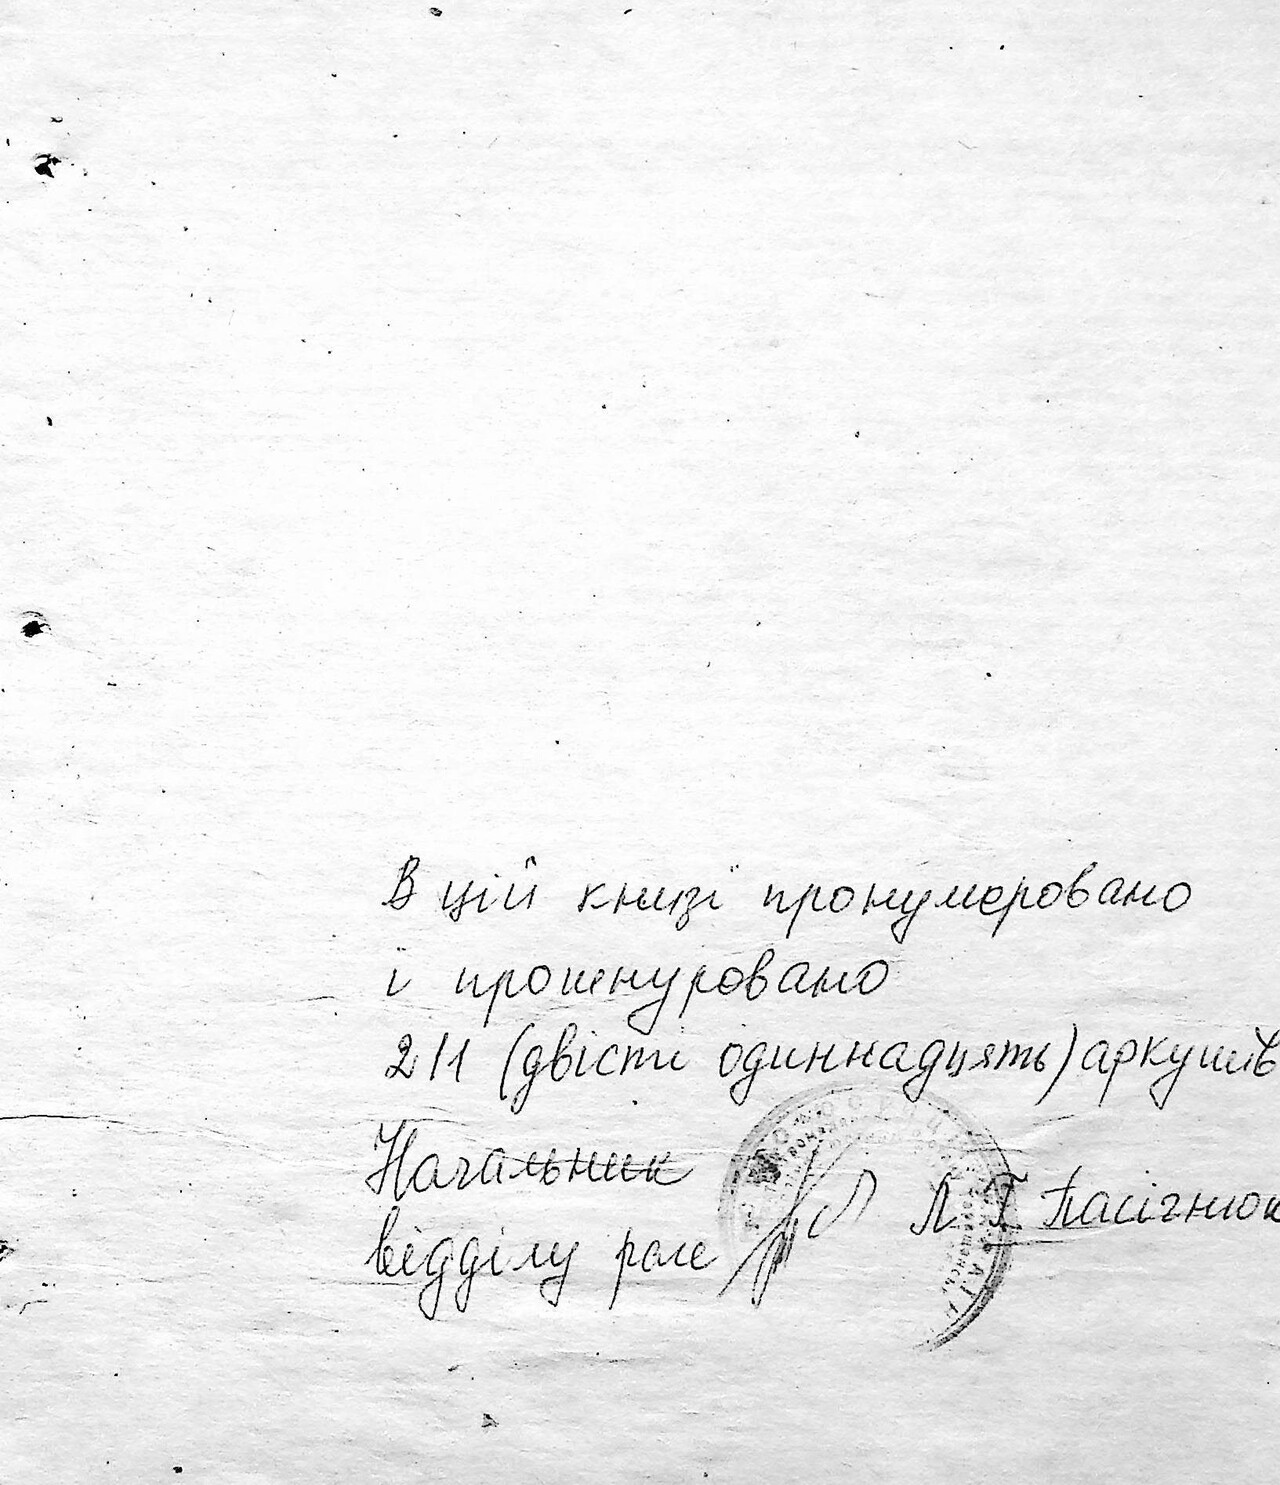 В цій книзі пронумеровано
і прошнуровано
211 (двісті одиннадцять) аркушів
Начальник
відділу Л Г Пасічнюк